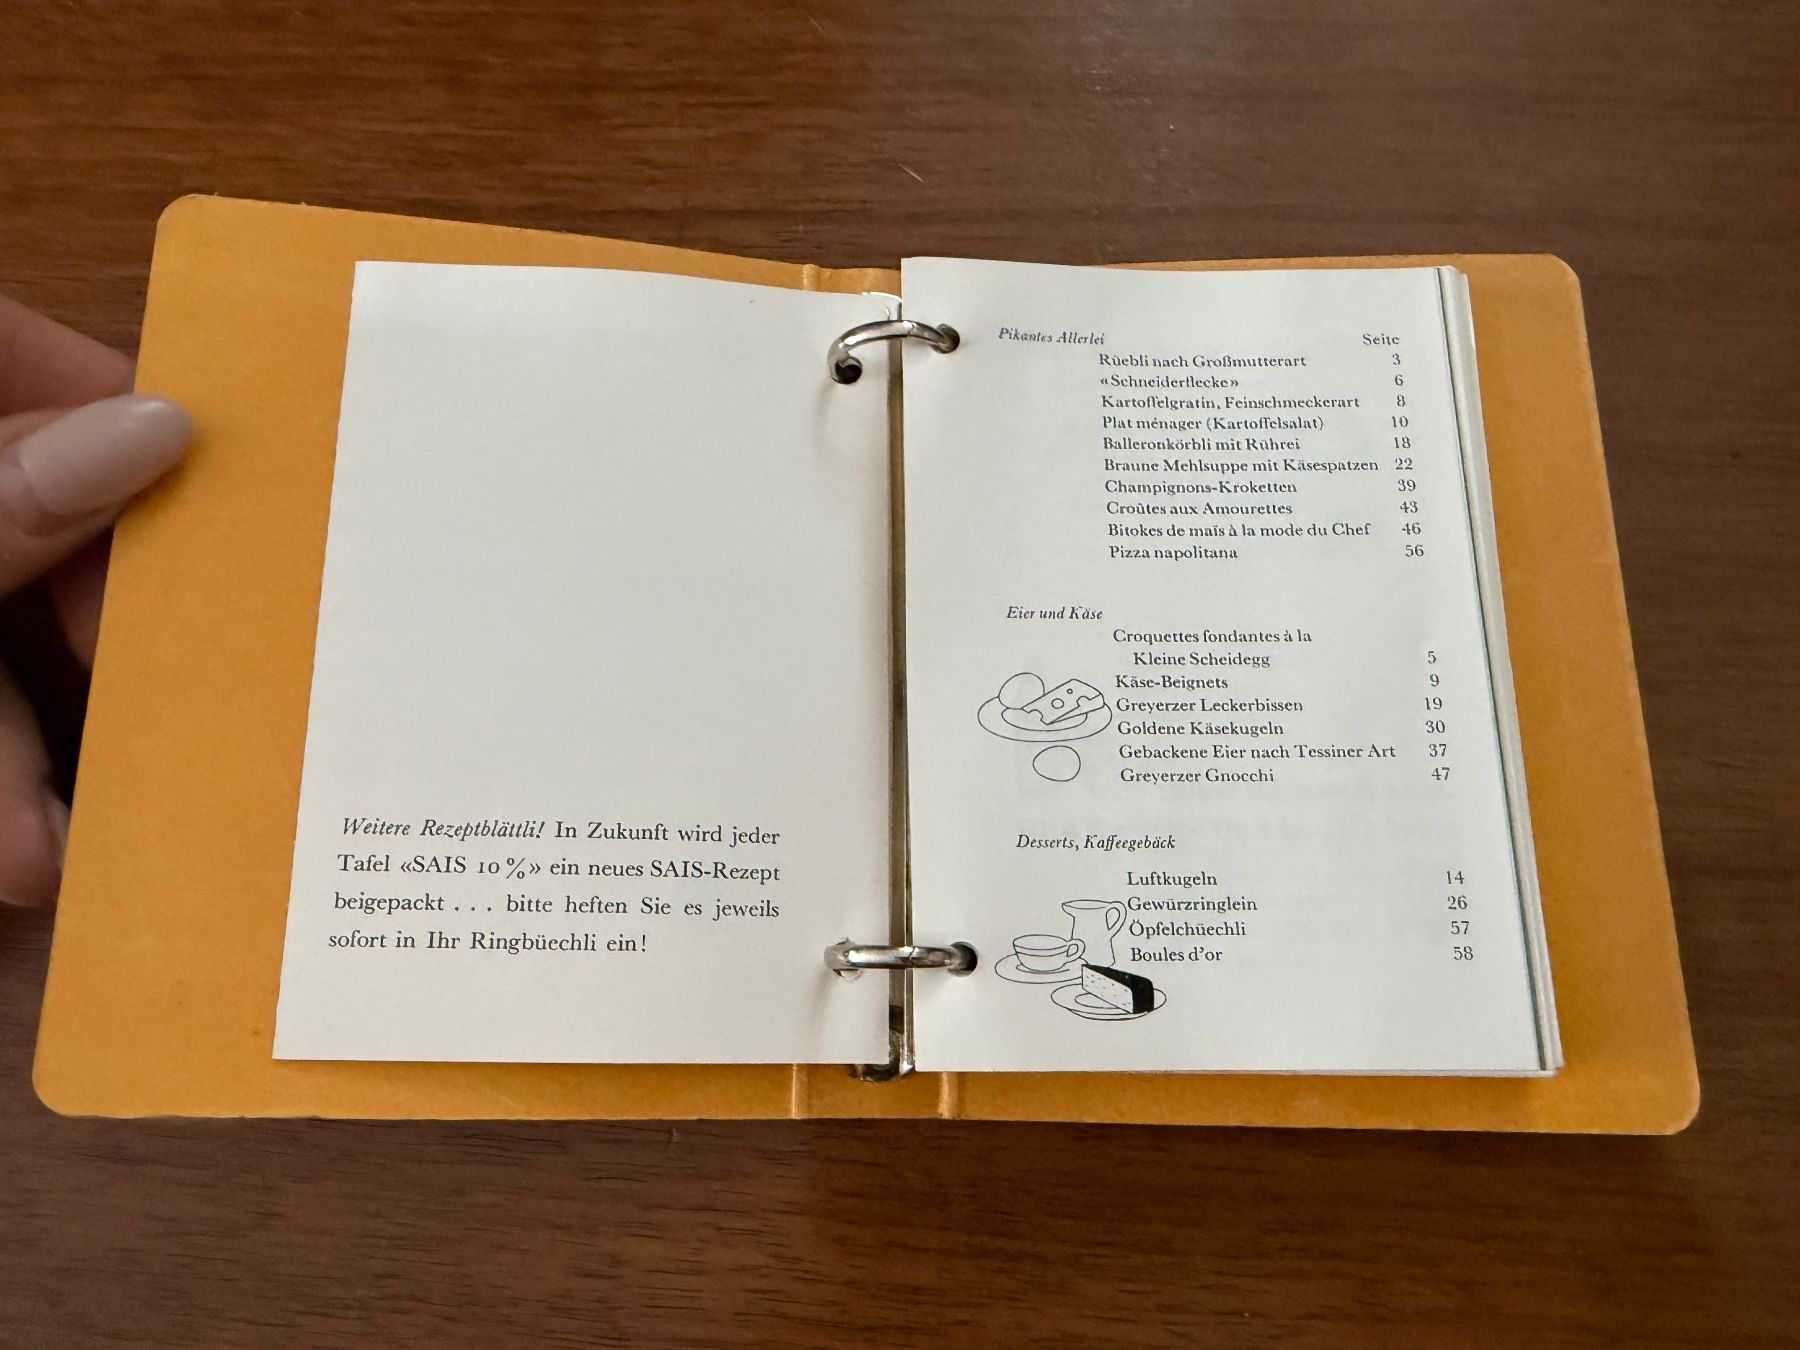 Weitere Rezeptblättli! In Zukunft wird jeder
Tafel «SAIS 10%» ein neues SAIS-Rezept
beigepackt . . . bitte heften Sie es jeweils
sofort in Ihr Ringbüechli ein!
Pikantes Allerlei Seite
Rüebli nach Großmutterart 3
«Schneiderflecke» 6
Kartoffelgratin, Feinschmeckerart 8
Plat ménager (Kartoffelsalat) 10
Balleronkörbli mit Rührei 18
Braune Mehlsuppe mit Käsespatzen 22
Champignons-Kroketten 39
Croûtes aux Amourettes 43
Bitokes de maïs à la mode du Chef 46
Pizza napolitana 56
Eier und Käse
Croquettes fondantes à la
Kleine Scheidegg 5
Käse-Beignets 9
Greyerzer Leckerbissen 19
Goldene Käsekugeln 30
Gebackene Eier nach Tessiner Art 37
Greyerzer Gnocchi 47
Desserts, Kaffeegebäck
Luftkugeln 14
Gewürzringlein 26
Öpfelchüechli 57
Boules d'or 58